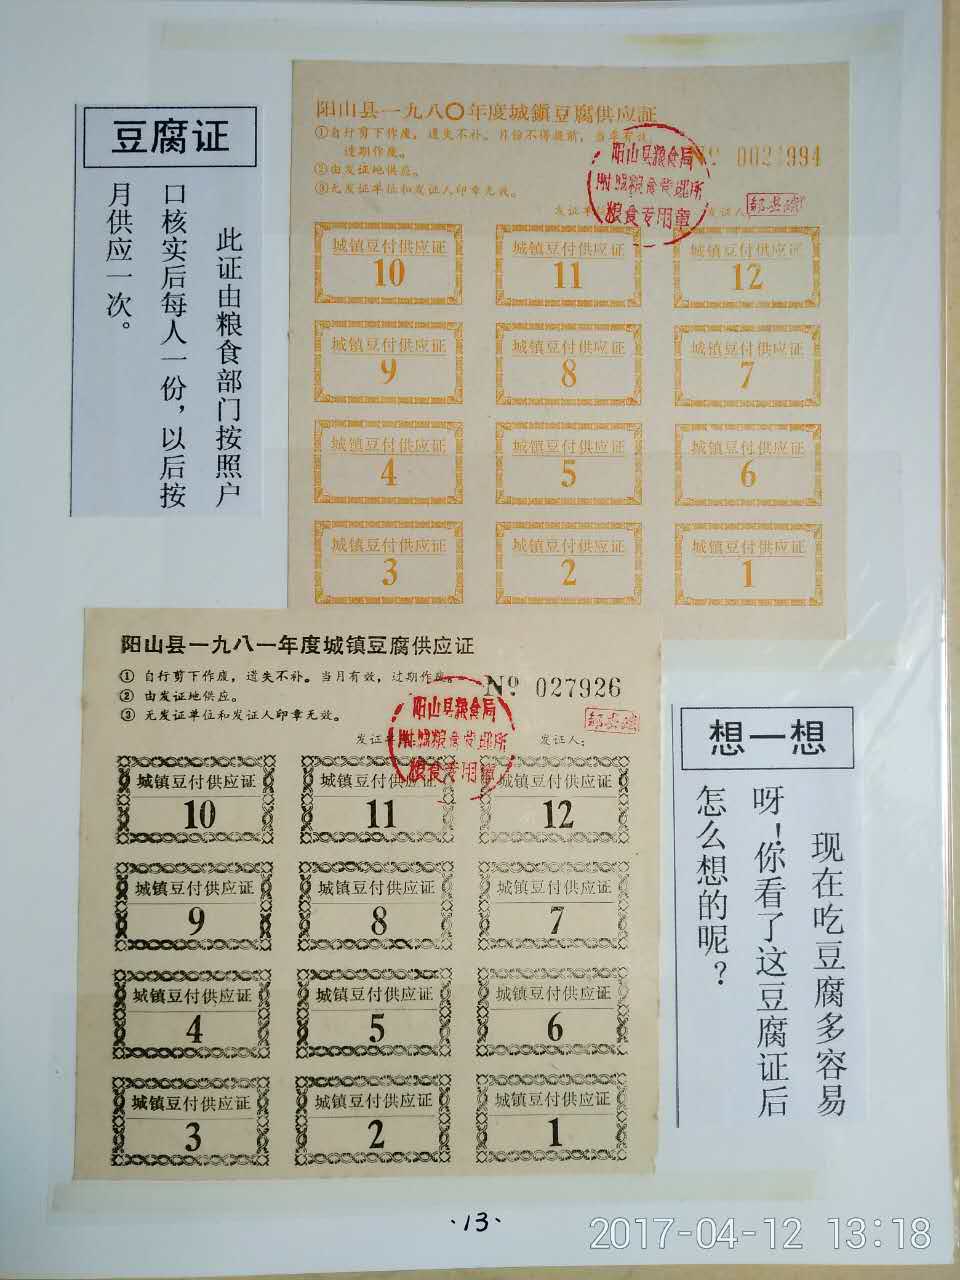 豆腐证
此证由粮食部门按照户
口核实后每人一份，以后按
月供应一次。
阳山县一九八〇年度城鎮豆腐供应証
①自行剪下作废，遗失不补。月份不得提前，当年有效，
过期作废。
②由发证地供应。
③无发证单位和发证人印章无效。
№ 0024994
发证单
发证人
阳山县粮食局
粮食专用章
城镇豆付供应证
10
城镇豆付供应证
11
城镇豆付供应证
12
城镇豆付供应证
9
城镇豆付供应证
8
城镇豆付供应证
7
城镇豆付供应证
4
城镇豆付供应证
5
城镇豆付供应证
6
城镇豆付供应证
3
城镇豆付供应证
2
城镇豆付供应证
1
阳山县一九八一年度城镇豆腐供应证
① 自行剪下作废，遗失不补。当月有效，过期作废。
② 由发证地供应。
③ 无发证单位和发证人印章无效。
№ 027926
发证单
发证人：
阳山县粮食局
粮食专用章
城镇豆付供应证
10
城镇豆付供应证
11
城镇豆付供应证
12
城镇豆付供应证
9
城镇豆付供应证
8
城镇豆付供应证
7
城镇豆付供应证
4
城镇豆付供应证
5
城镇豆付供应证
6
城镇豆付供应证
3
城镇豆付供应证
2
城镇豆付供应证
1
想一想
现在吃豆腐多容易
呀！你看了这豆腐证后
怎么想的呢？
·13·
2017-04-12 13:18